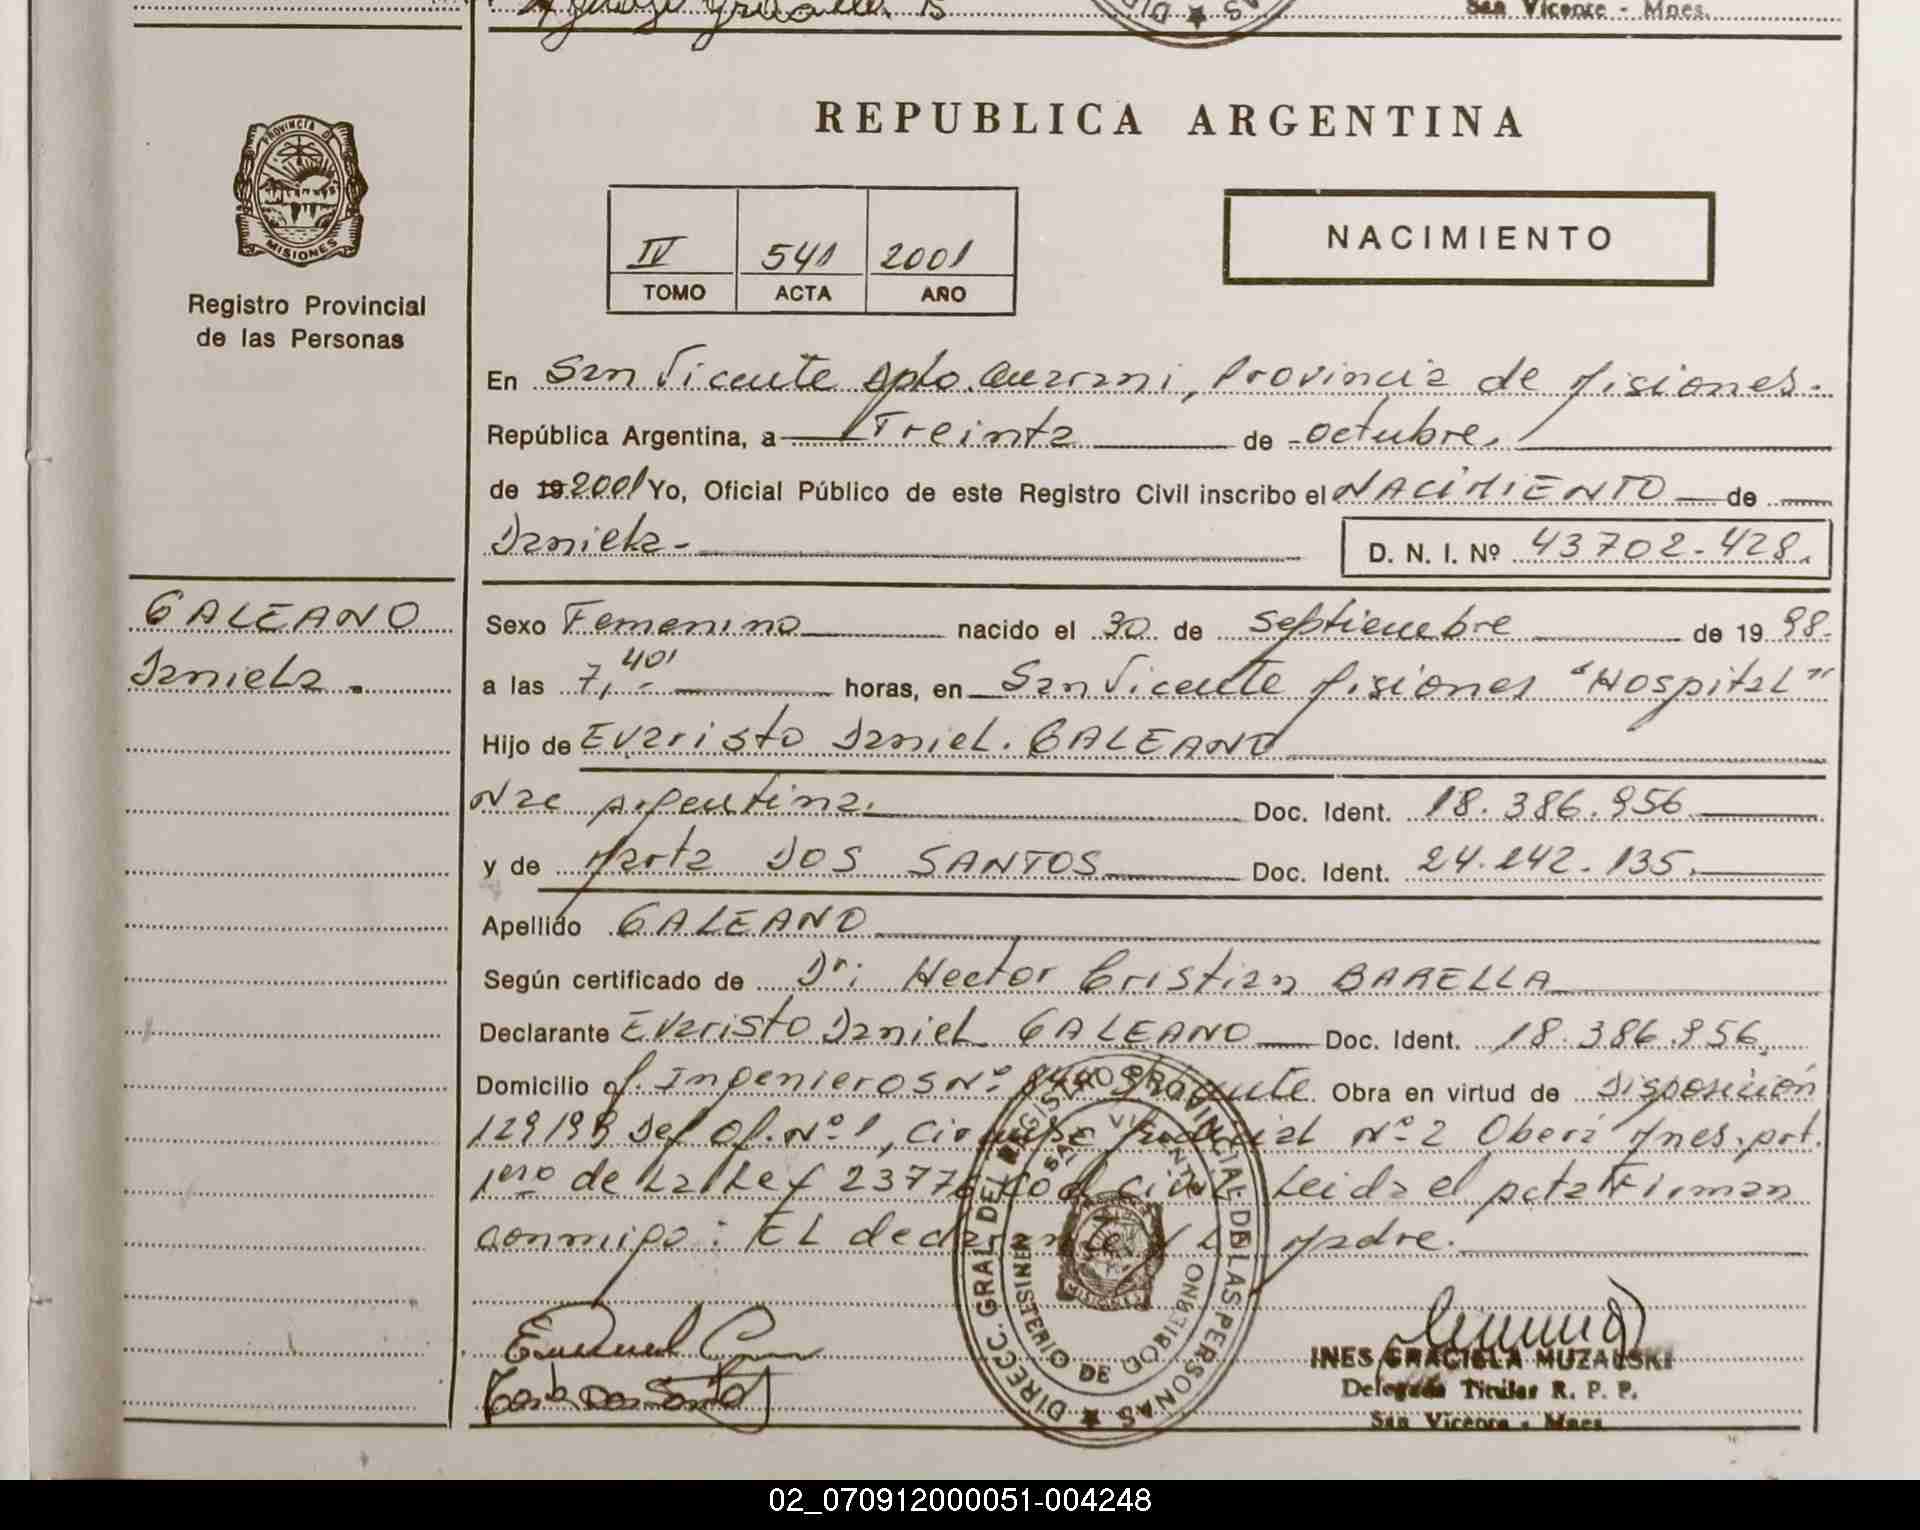 San Vicente - Mnes.
REPUBLICA ARGENTINA
PROVINCIA DE
MISIONES
Registro Provincial
de las Personas
IV 541 2001
TOMO ACTA AÑO
NACIMIENTO
En San Vicente Dpto. Guarani, Provincia de Misiones.
República Argentina, a Treinta de octubre.
de 19 2001 Yo, Oficial Público de este Registro Civil inscribo el NACIMIENTO de
Daniela- D. N. I. Nº 43702-428.
GALEANO
Daniela.
Sexo Femenino nacido el 30 de Septiembre de 1998.
a las 7,40' horas, en San Vicente Misiones "Hospital"
Hijo de Evaristo Daniel. GALEANO
Nac Argentina. Doc. Ident. 18.386.956
y de Marta DOS SANTOS Doc. Ident. 24.242.135.
Apellido GALEANO
Según certificado de Dr: Hector Cristian BARELLA
Declarante Evaristo Daniel GALEANO Doc. Ident. 18.386.956.
Domicilio Ingenieros Nº Obra en virtud de Disposición
129/99 Def Of. Nº 1, Judicial Nº 2 Oberá Mnes. Art.
1ero de La Ley Civil Leida el Acta Firman
conmigo: El declarante y La Madre.
DIRECC. GRAL. DEL REGISTRO PROVINCIAL DE LAS PERSONAS
SAN VICENTE
MINISTERIO DE GOBIERNO
MISIONES
INES GRACIELA MUZALSKI
Delegada Titular R. P. P.
San Vicente - Mnes.
02_070912000051-004248